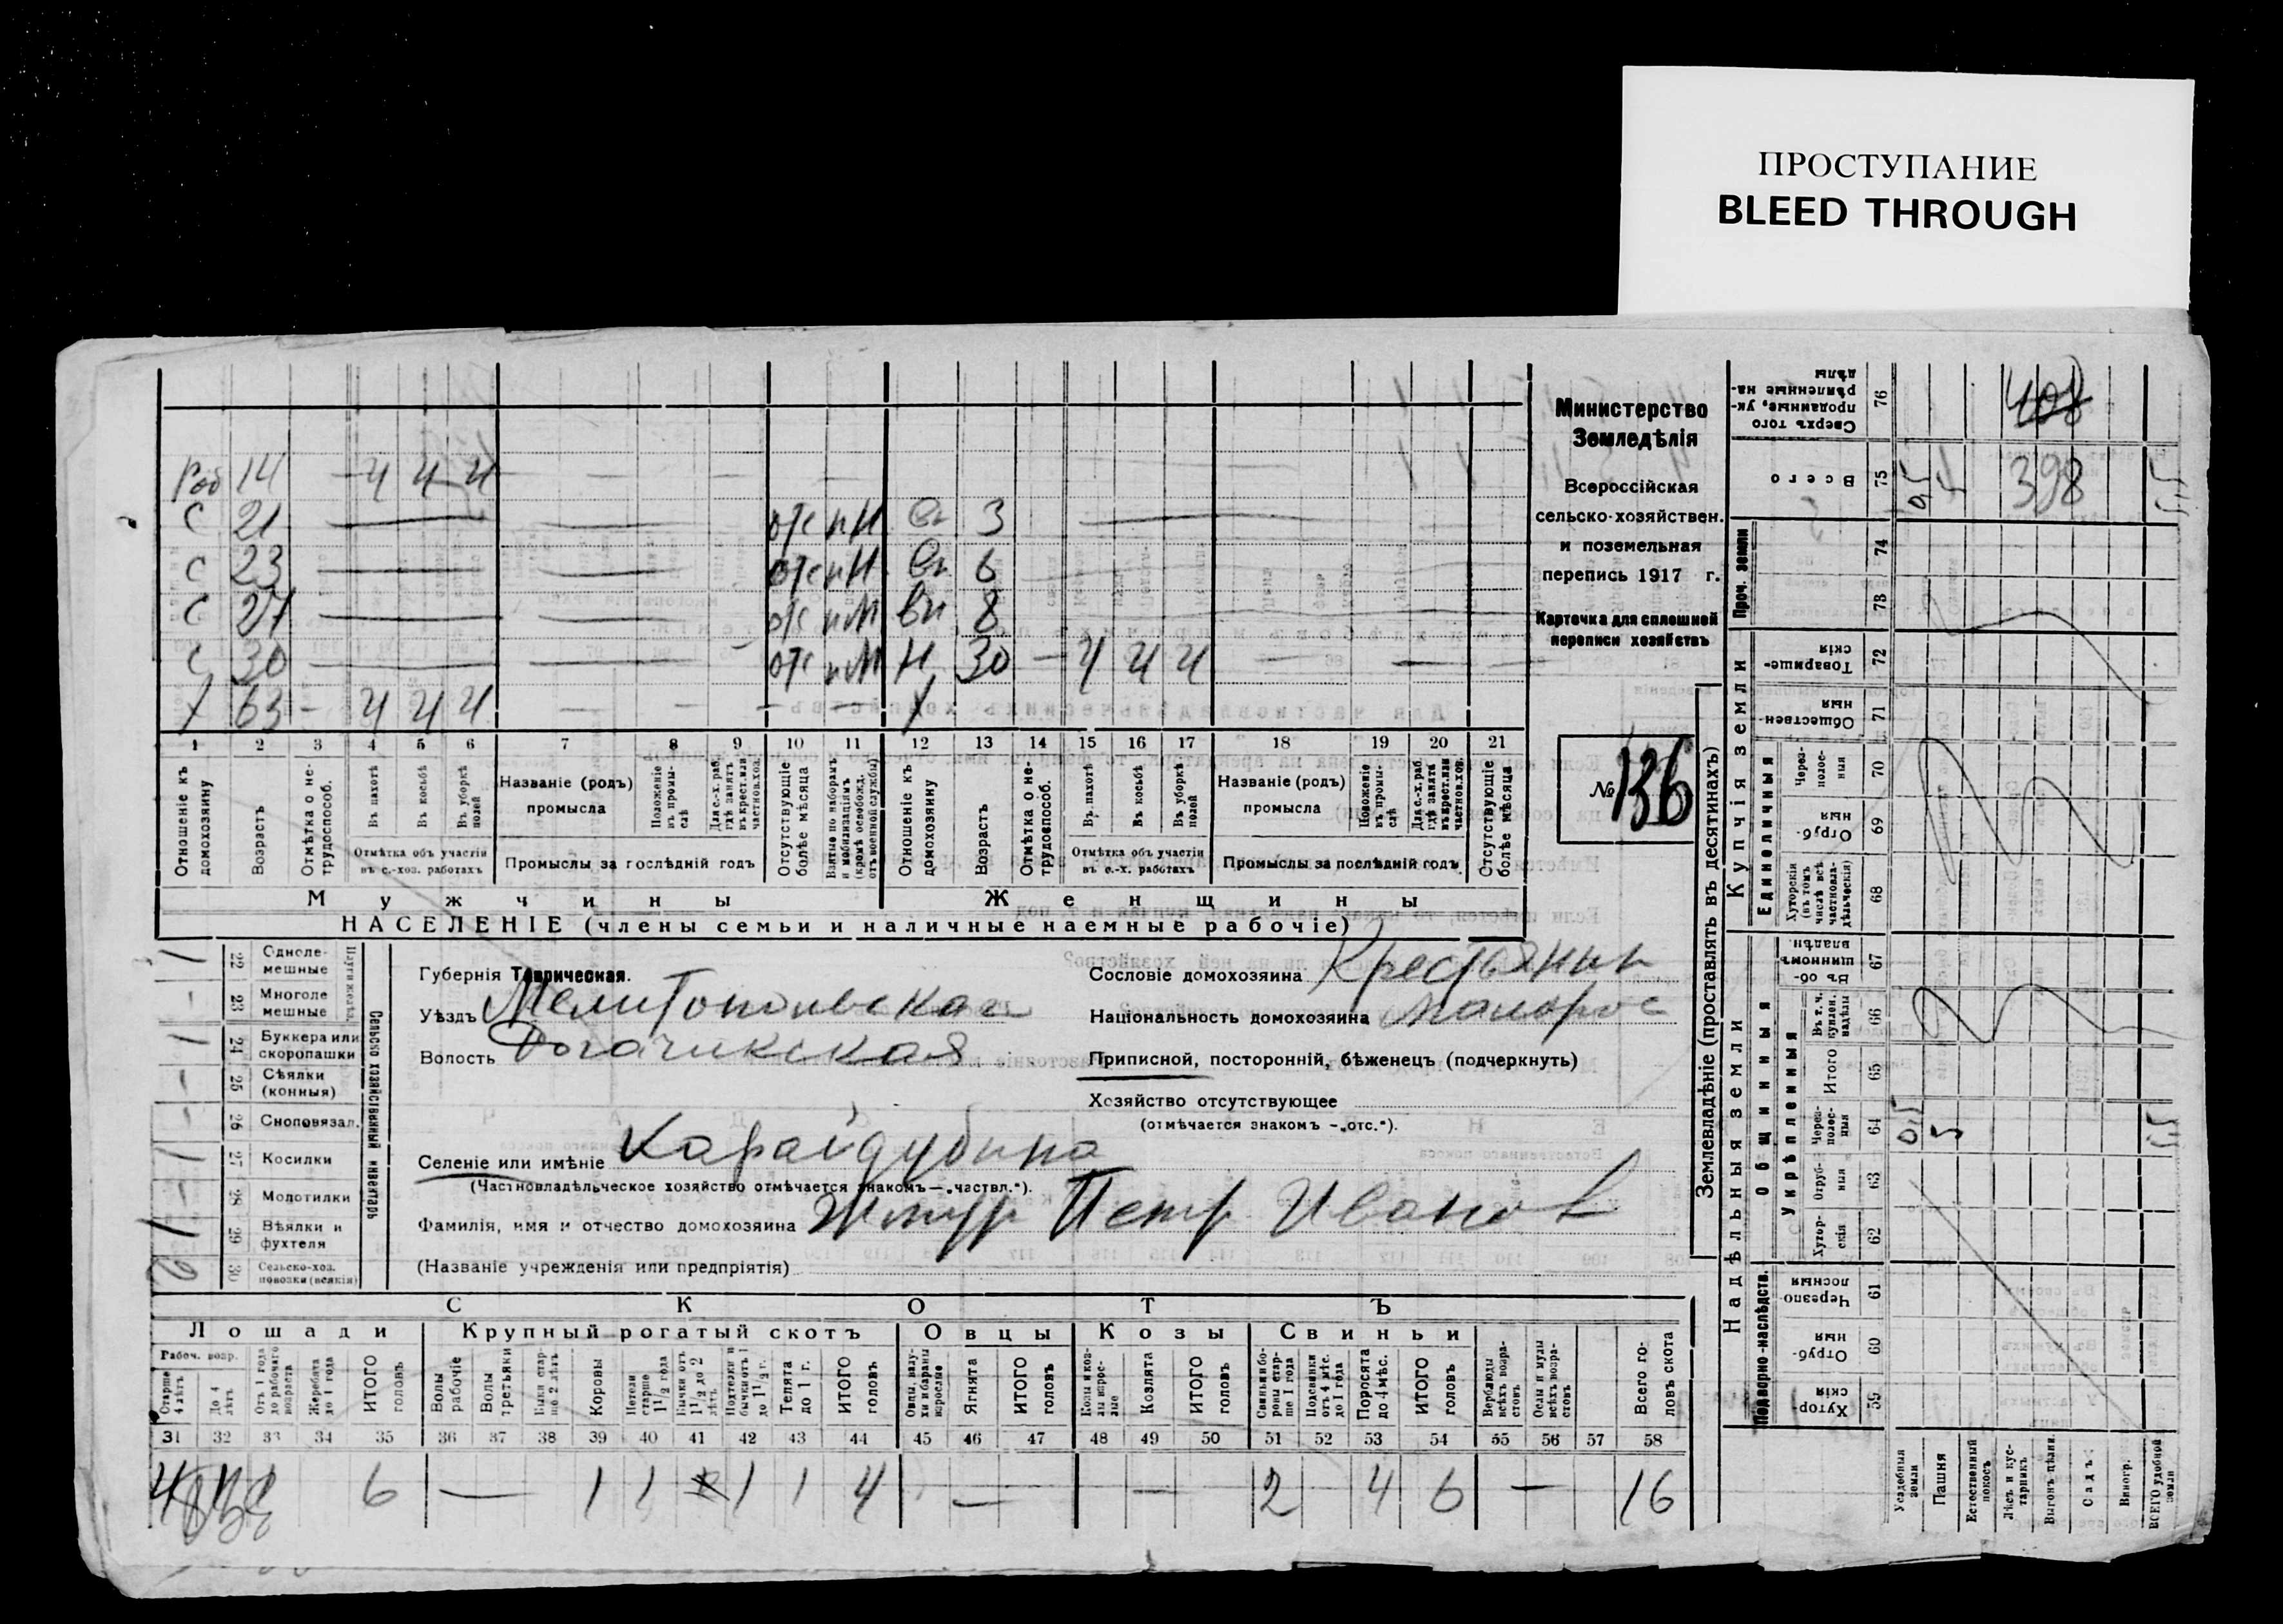 ПРОСТУПАНИЕ
BLEED THROUGH
Раб 14 — ч ч ч — — — —
С 21 — — отс пН Вн 3 —
С 23 — — отс пН Вн 6 —
С 27 — — отс пМ Вн 8 —
С 30 — — отс пМ Н 30 — ч ч ч — —
Х 63 — ч ч ч — — — — Х
1 2 3 4 5 6 7 8 9 10 11 12 13 14 15 16 17 18 19 20 21
Отношеніе къ домохозяину
Возрастъ
Отмѣтка о нетрудоспособ.
Въ пахотѣ
Въ косьбѣ
Въ уборкѣ полей
Отмѣтка объ участіи въ с.-хоз. работахъ
Названіе (родъ) промысла
Положеніе въ промыслѣ
Для с.-х. раб. гдѣ занятъ въ крест. или частновл. хоз.
Промыслы за послѣдній годъ
Отсутствующіе болѣе мѣсяца
Взятые по наборамъ и мобилизаціямъ (кромѣ освобожд. отъ военной службы)
Отношеніе къ домохозяину
Возрастъ
Отмѣтка о нетрудоспособ.
Въ пахотѣ
Въ косьбѣ
Въ уборкѣ полей
Отмѣтка объ участіи въ с.-х. работахъ
Названіе (родъ) промысла
Положеніе въ промыслѣ
Для с.-х. раб. гдѣ занята въ крест. или частновл. хоз.
Промыслы за послѣдній годъ
Отсутствующіе болѣе мѣсяца
Мужчины Женщины
НАСЕЛЕНІЕ (члены семьи и наличные наемные рабочіе)
Министерство
Земледѣлія
Всероссійская
сельско-хозяйствен.
и поземельная
перепись 1917 г.
Карточка для сплошной
переписи хозяйствъ
№ 136
Сельско хозяйственный инвентарь
Плуги желѣз.
1 22 Одноле-мешные
— 23 Многоле мешные
1 24 Буккера или скоропашки
— 25 Сѣялки (конныя)
— 26 Сноповязал.
1 27 Косилки
— 28 Молотилки
1 29 Вѣялки и фухтеля
2 30 Сельско-хоз. повозки (всякія)
Губернія Таврическая.
Уѣздъ Мелитопольская
Волость Рогачикская
Селеніе или имѣніе Карайдубина
(Частновладѣльческое хозяйство отмѣчается знакомъ — „частвл.“).
Фамилія, имя и отчество домохозяина Жмур Петр Иванов
(Названіе учрежденія или предпріятія)
Сословіе домохозяина Крестьянин
Національность домохозяина малорос
Приписной, посторонній, бѣженецъ (подчеркнуть)
Хозяйство отсутствующее
(отмѣчается знакомъ - „отс.“).
СКОТЪ
Лошади Крупный рогатый скотъ Овцы Козы Свиньи
Рабоч. возр.
Старше 4 лѣтъ
До 4 лѣтъ
Отъ 1 года до рабочаго возраста
Жеребята до 1 года
ИТОГО головъ
Волы рабочіе
Волы третьяки
Быки старше 2 лѣтъ
Коровы
Нетели старше 1 1/2 года
Бычки отъ 1 1/2 до 2 лѣтъ
Подтелки и бычки отъ 1 до 1 1/2 г.
Телята до 1 г.
ИТОГО головъ
Овцы, валухи и бараны взрослые
Ягнята
ИТОГО головъ
Козы и козлы взрослые
Козлята
ИТОГО головъ
Свиньи и боровы старше 1 года
Подсвинки отъ 4 мѣс. до 1 года
Поросята до 4 мѣс.
ИТОГО головъ
Верблюды всѣхъ возрастовъ
Ослы и мулы всѣхъ возрастовъ
Всего головъ скота
31 32 33 34 35 36 37 38 39 40 41 42 43 44 45 46 47 48 49 50 51 52 53 54 55 56 57 58
6 — 1 1 1 1 4 — — 2 4 6 — 16
Землевладѣніе (проставлять въ десятинахъ)
Надѣльныя земли
Купчія земли
Проч. земли
Подворно-наслѣдств.
Общинныя
Укрѣпленныя
Единоличныя
59 Хуторскія
60 Отрубныя
61 Черезполосныя
62 Хуторскія
63 Отрубныя
64 Черезполосныя 0,5 5 5,5
65 Итого
66 Въ т. ч. куплен. надѣлы
67 Въ общинномъ владѣн.
68 Хуторскія (въ томъ числѣ всѣ частновладѣльческія)
69 Отрубныя
70 Черезполосныя
71 Общественныя
72 Товарищескія
73
74
75 Всего 0,5 5 398 5,5
76 Сверхъ того проданные, укрѣпленные надѣлы 408
Усадебныя земли
Пашня
Естественный покосъ
Лѣсъ и кустарникъ
Выгонъ цѣлин.
Садъ
Виногр.
ВСЕГО удобной земли